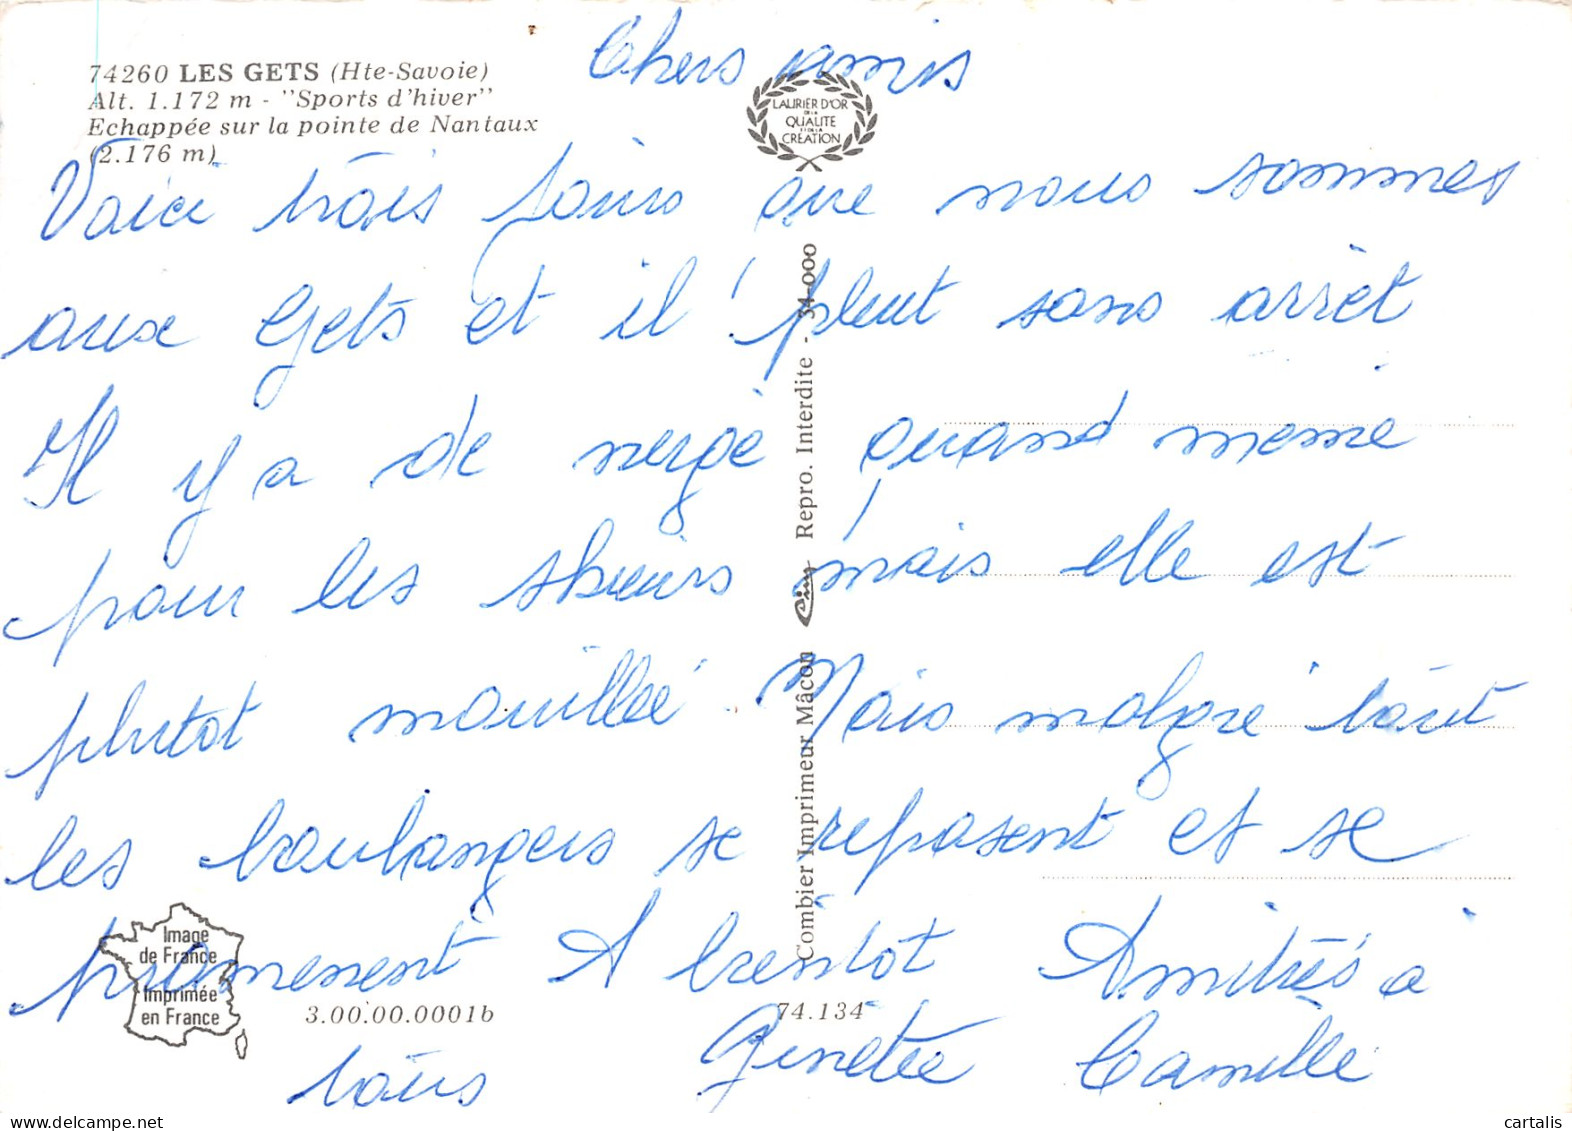 74260 LES GETS (Hte-Savoie)
Alt. 1.172 m - "Sports d'hiver"
Echappée sur la pointe de Nantaux
(2.176 m)
LAURIER D'OR
DE LA
QUALITE
ET DE LA
CRÉATION
Chers amis
Voici trois jours que nous sommes
aux Gets et il pleut sans arrêt
Il y a de neige quand meme
pour les skieurs mais elle est
plutot mouillée. Mais malgre tout
les boulangers se reposent et se
promenent A bientot Amitiés a
tous Ginette Camille
Combier Imprimeur Mâcon Cim Repro. Interdite - 34-000
Image
de France
Imprimée
en France
3.00.00.0001b
74.134
delcampe.net
cartalis